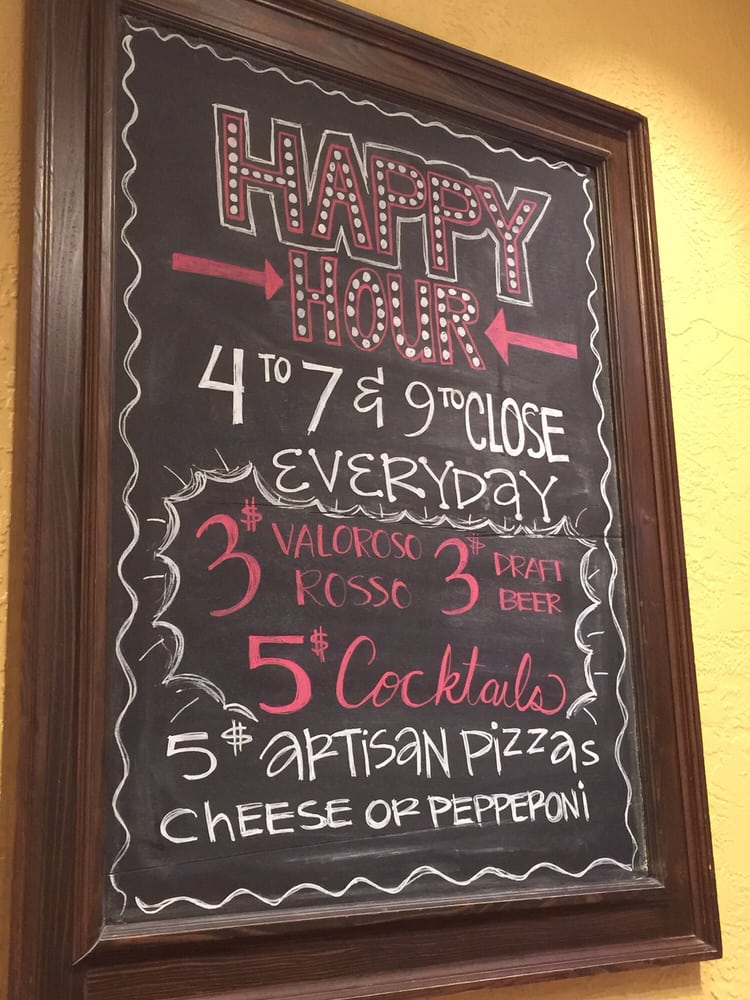 HAPPY
HOUR
4 TO 7 & 9 TO CLOSE
EVERYDAY
3$ VALOROSO ROSSO 3$ DRAFT BEER
5$ Cocktails
5$ ARTISAN PIZZAS
CHEESE OR PEPPERONI